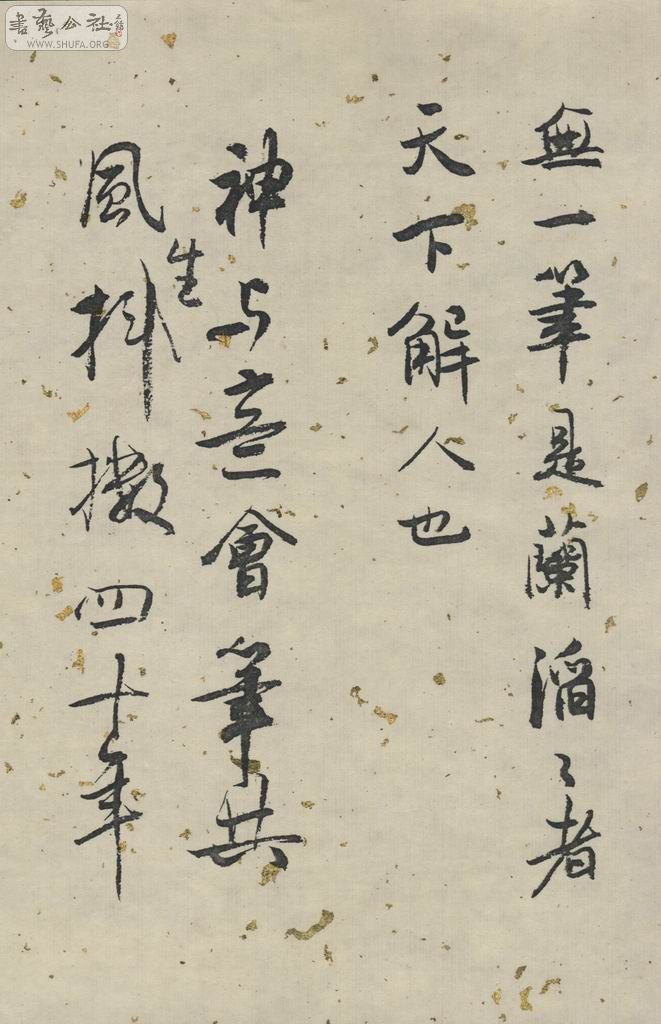 書藝公社
WWW.SHUFA.ORG
無一筆是蘭滔〻者
天下解人也
神与意會筆共
風生抖擻四十年